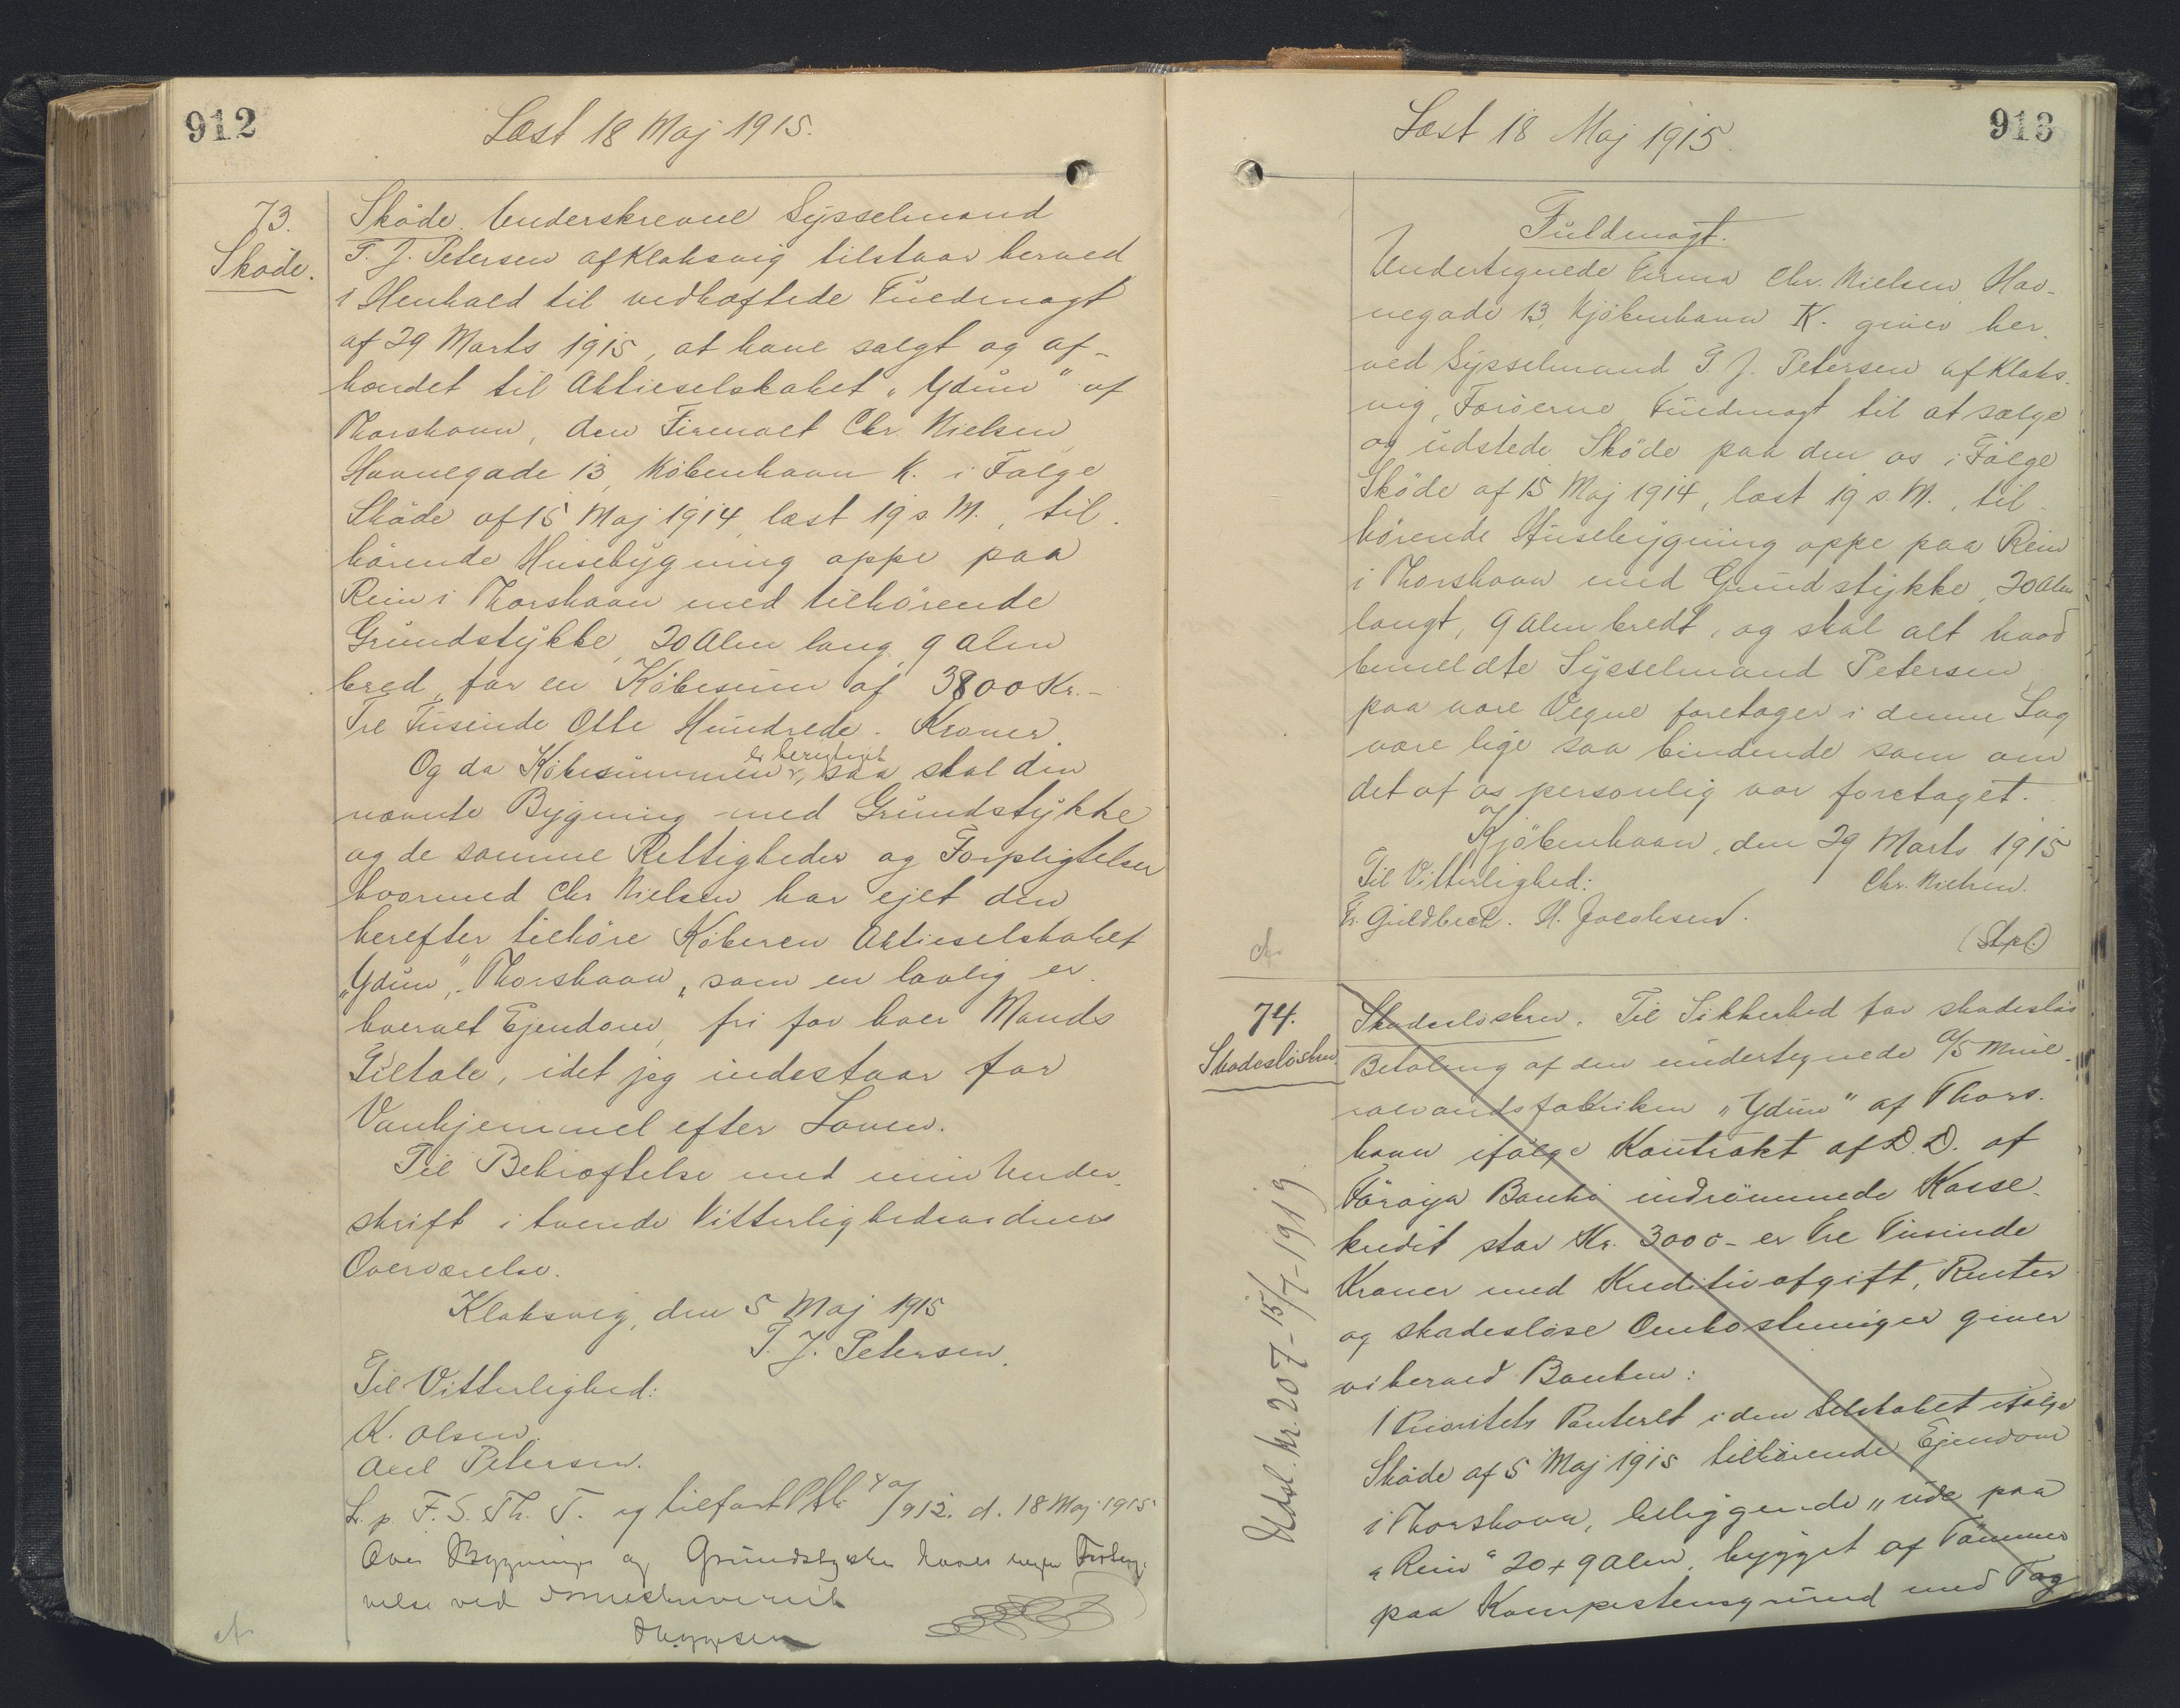 912
Læst 18 Maj 1915.
73.
Skøde.
Skøde. Underskrevne Sysselmand
T. J. Petersen af Klaksvig tilstaar herved
i Henhold til vedhæftede Fuldmagt
af 29 Marts 1915, at have solgt og af-
hændet til Aktieselskabet "Ydun" af
Thorshavn, den Firmaet Chr. Nielsen
Havnegade 13, København K. i Følge
Skøde af 15 Maj 1914, læst 19 s. M., til-
hørende Husebygning oppe paa
Rein i Thorshavn med tilhørende
Grundstykke, 20 Alen lang, 9 alen
bred, for en Købesum af 3800 Kr. -
Tre Tusinde Otte Hundrede - Kroner.
Og da Købesummen er berigtiget, saa skal den
nævnte Bygning med Grundstykke
og de samme Rettigheder og Forpligtelser
hvormed Chr Nielsen har ejet den
herefter tilhøre Køberen Aktieselskabet
"Ydun", Thorshavn, som en lovlig er-
hvervet Ejendom, fri for hver Mands
Tiltale, idet jeg indestaar for
Vanhjemmel efter Loven.
Til Bekræftelse med min Under-
skrift i tvende Vitterlighedsvidners
Overværelse.
Klaksvig, den 5 Maj 1915
T. J. Petersen.
Til Vitterlighed:
K. Olsen.
Axel Petersen.
L. p. F. S. Th. T. og tilført 912. d. 18 Maj 1915
Over Bygninger og Grundstykker haves ingen
ved
913
Læst 18 Maj 1915.
Fuldmagt.
Undertegnede Firma Chr. Nielsen, Hav-
negade 13, Kjøbenhavn K. giver her-
ved Sysselmand T J. Petersen af Klaks-
vig, Færøerne Fuldmagt til at sælge
og udstede Skøde paa den os i Følge
Skøde af 15 Maj 1914, læst 19 s. M., til-
hørende Husebygning oppe paa Rein
i Thorshavn med Grundstykke, 20 Alen
langt, 9 Alen bredt, og skal alt hvad
bemeldte Sysselmand Petersen
paa vore Vegne foretager i denne Sag
være lige saa bindende som om
det af os personlig var foretaget.
Kjøbenhavn, den 29 Marts 1915
Til Vitterlighed:
Chr. Nielsen.
Fr. Guldbeck. H. Jacobsen.
(Stpl.)
74.
Skadesløsbrev
Skadesløsbrev. Til Sikkerhed for skadesløs
Betaling af den undertegnede A/S Mine-
ralvandsfabriken "Ydun" af Thors-
havn ifølge Kontrakt af D. D. af
Føroya Banki indrømmede Kasse-
kredit stor Kr. 3000 - er Tre Tusinde
Kroner med Kreditivafgift, Renter
og skadesløse Omkostninger giver
vi herved Banken:
1 Prioritets Panteret i den Selskabet ifølge
Skøde af 5 Maj 1915 tilhørende Ejendom
i Thorshavn, beliggende "ude paa
Rein" 20 x 9 Alen, bygget af Tømmer
paa Kampestensgrund med Tag
Udsl. Nr. 207 - 15/7 - 1919